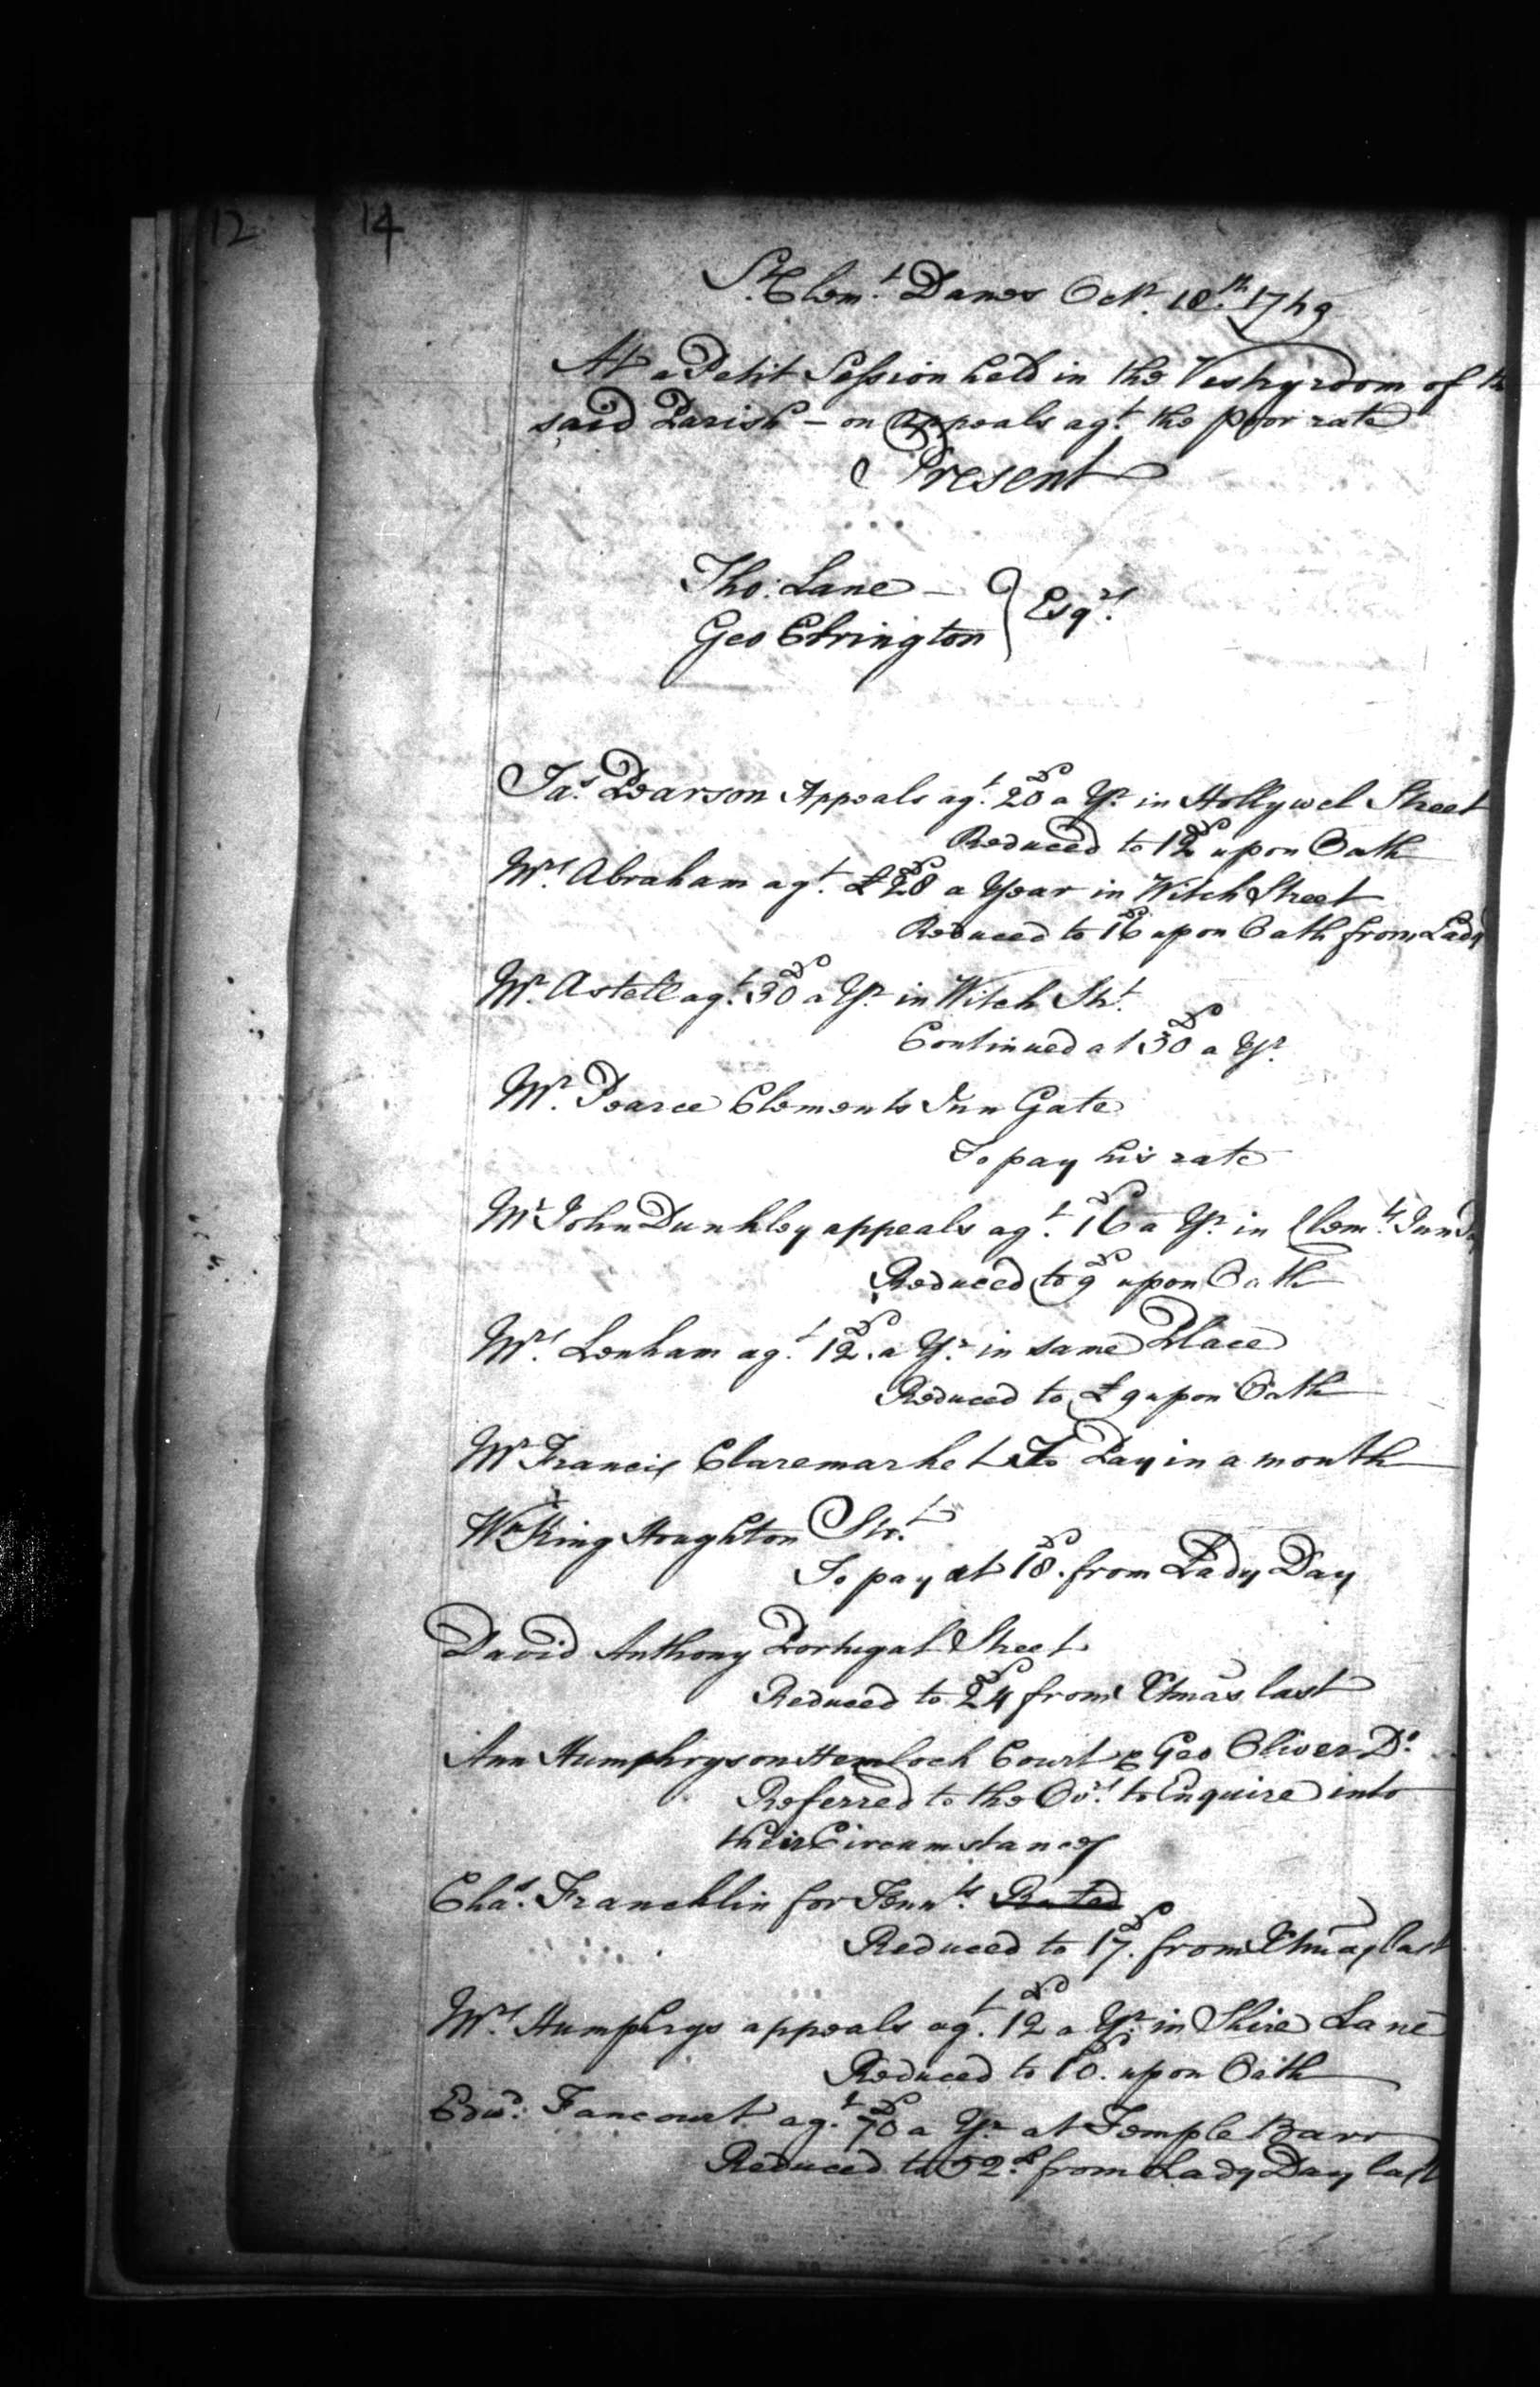 12 14
St. Clemt. Danes Octr. 18th. 1749
At a Petit Session held in the Vestry room of the
said Parish - on Appeals agt. the poor rate
Present
Tho: Lane -
Geo Errington } Esqrs.
Jas. Pearson Appeals agt. 20£ a Yr. in Hollywel Street
Reduced to 12£ upon Oath
Mrs. Abraham agt. £28 a Year in Witch Street
Reduced to 16£ upon Oath from Lady
Mr. Astell agt. 30£ a Yr. in Witch Strt.
Continued at 30£ a Yr.
Mr. Pearce Clements Inn Gate
To pay his rate
Mr. John Dunkley appeals agt. 16£ a Yr. in Clemts. Inn
Reduced to 9£ upon Oath
Mrs. Lenham agt. 12£. a Yr. in same Place
Reduced to £9 upon Oath
Mr. Francis Claremarket To Pay in a month
Wm King Houghton Strt.
To pay at 18£. from Lady Day
David Anthony Portugal Street
Reduced to 24£ from Xmas last
Ann Humphryson Hemloch Court & Geo Oliver Do.
Referred to the Ovrs. to Enquire into
their Circumstances
Chas. Francklin for Tennts. Rated
Reduced to 17£. from Xmas last
Mrs. Humphrys appeals agt. 12£ a Yr. in Shire Lane
Reduced to 10£. upon Oath
Edwd. Fancourt agt. 70£ a Yr. at Temple Barr
Reduced to 52£. from Lady Day last